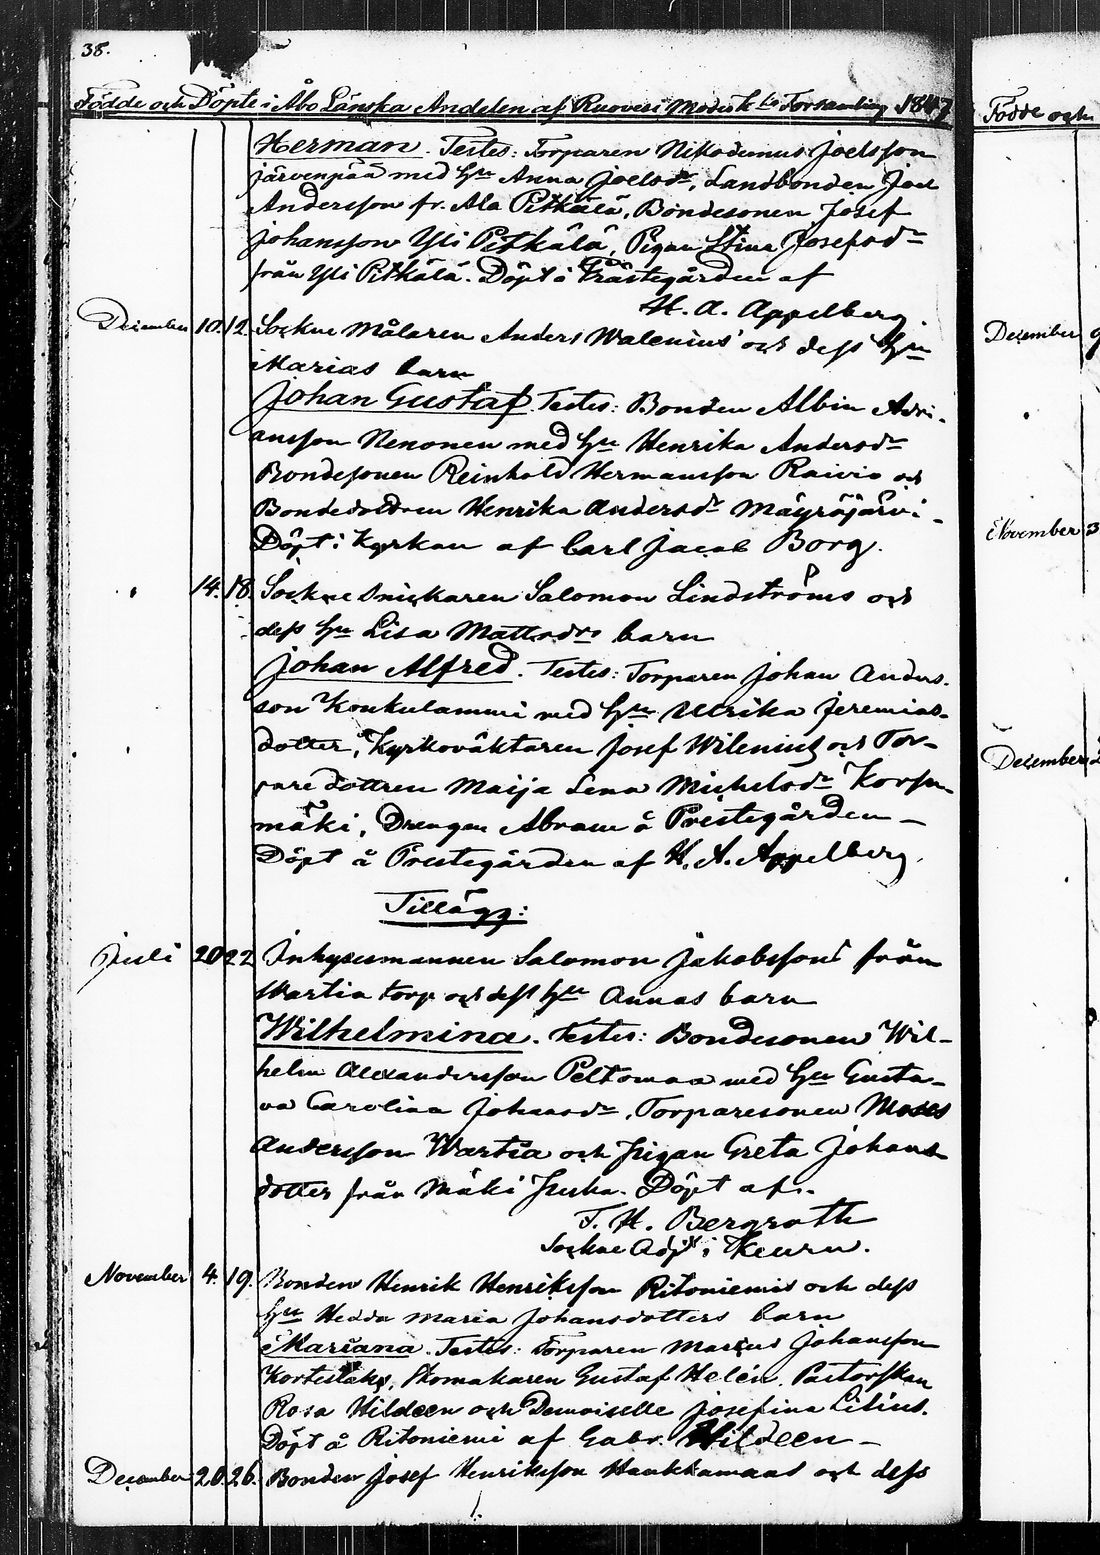 38.
Födde och Döpte i Åbo Länska Andelen af Ruovesi Moderk:s Församling 1847
Herman. Testes: Torparen Nikodemus Joelsson
Järvenpää med Hu Anna Joelsdr, Landbonden Joel
Andersson fr. Ala Pitkälä, Bondesonen Josef
Johansson Yli Pitkälä, Pigan Stina Josefsdr
från Yli Pitkälä. Döpt å Prästegården af
H. A. Appelberg.
December 10. 12. Sockne Målaren Anders Walenius' och dess Hu
Marias barn
Johan Gustaf. Testes: Bonden Albin Adri-
ansson Nenonen med Hu Henrika Andersdr
Bondesonen Reinhold Hermansson Raivio och
Bondedottren Henrika Andersdr Mäyräjärvi-
Döpt i Kyrkan af Carl Jacob Borg.
14. 18. Sockne Snickaren Salomon Lindströms och
dess Hu Lisa Mattsdrs barn
Johan Alfred. Testes: Torparen Johan Anders-
son Konkulammi med Hu Ulrika Jeremias-
dotter, Kyrkoväktaren Josef Wilenius och Tor-
pare dottren Maija Lena Michelsdr Korpu-
mäki, Drengen Abram å Prestegården —
Döpt å Prestegården af H. A. Appelberg.
Tillägg:
Juli 20 22 Inhysesmannen Salomon Jakobssons från
Wartia torp och dess Hu Annas barn
Wilhelmina. Testes: Bondesonen Wil-
helm Alexandersson Peltomaa med Hu Gusta-
va Carolina Johansdr, Torparesonen Moses
Andersson Wartia och Pigan Greta Johans-
dotter från Mäki Puska. Döpt af.
T. H. Bergroth
Sockne Adjt i Keuru.
November 4. 19. Bonden Henrik Henriksson Ritoniemis och dess
Hu Hedda Maria Johansdotters barn
Mariana. Testes: Torparen Marcus Johansson
Skomakaren Gustaf Helén, Pastorskan
Rosa Hildeen och Demoiselle Josefina Lilius.
Döpt å Ritoniemi af Gabr. Hildeen —
December 20. 26. Bonden Josef Henriksson Haukkamaas och dess
Födde och
December 9
November 3
December